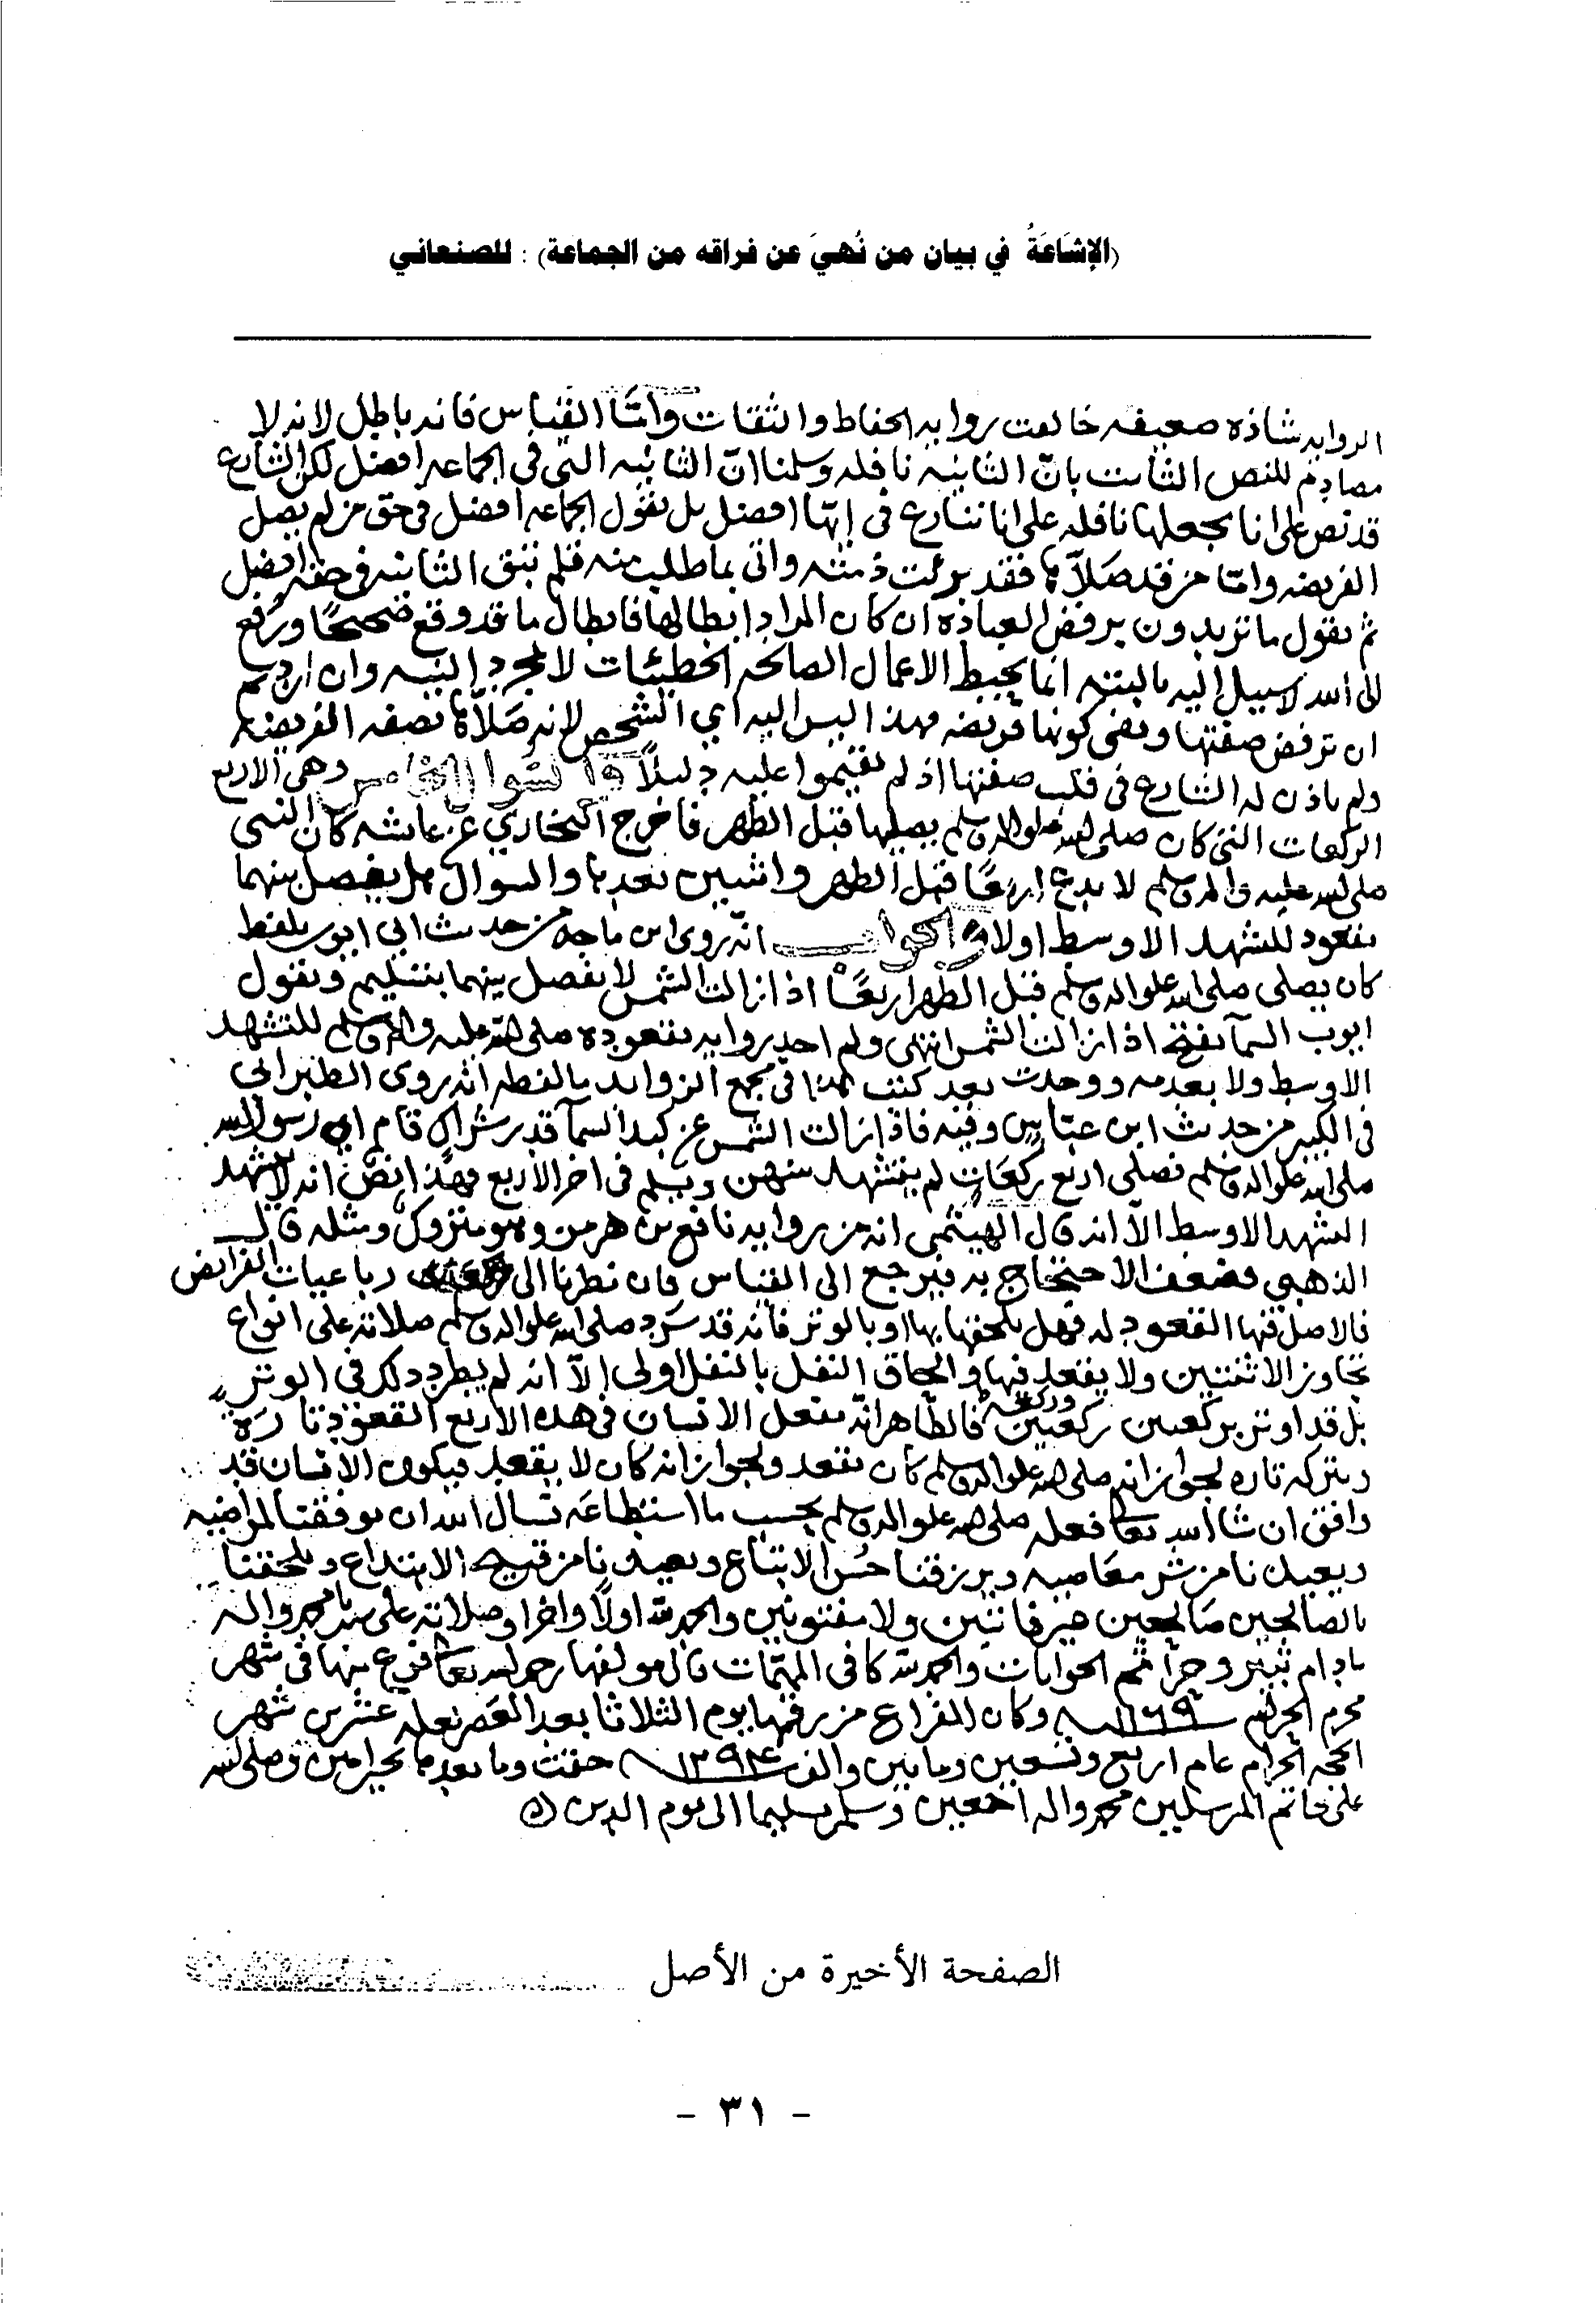 (الإشَاعَةُ في بيان من نُهيَ عن فراقه من الجماعة) : للصنعاني
الروايه شاذه ضعيفه خالفت روايه الحفاظ والثقات وأمّا القياس فانه باطل لانه لا
مصادم للنص الثابت بانّ الثانيه نافله وسلمنا انّ الثانيه التى فى الجماعه افضل لكن الشارع
قد نص على انا نجعلها نافله على انا ننازع فى إنّها افضل بل نقول الجماعه افضل فى حق من لم يصل
الفريضه وامّا من قد صَلاّها فقد برئت ذمته واتى بما طلب منه فلم تبق الثانيه فى حقه افضل
ثم نقول ما تريدون برفض العباده ان كان المراد ابطالها فابطال ما قد وقع صحيحًا ورفع
الى الله لا سبيل إليه بالبتته انما يحبط الاعمال الصالحه الخطيئات لا مجرد النيه وان اردتم
ان ترفض صفتها ونفى كونها فريضه فهذا ليس اليه اي الشخص لانه صَلاّها بصفه الفريضه
ولم ياذن له الشارع فى قلب صفتها اذ لم تقيموا عليه دليلاً والسوال الخامس وهى الاربع
الركعات التى كان صلى الله عليه واله وسلم يصليها قبل الظهر فاخرج البخاري عن عايشه كان النبى
صلى الله عليه واله وسلم لا يدع اربعًا قبل الظهر واثنيين بعدها والسوال هل يفصل بينهما
بقعود للتشهد الاوسط اولا والجواب انّه روى ابن ماجه من حديث ابى ايوب بلفظ
كان يصلى صلى الله عليه واله وسلم قبل الظهر اربعًا اذا زالت الشمس لا يفصل بينهما بتسليم ويقول
ابوب السما تفتح اذا زالت الشمس انتهى ولم اجد روايه بقعوده صلى الله عليه واله وسلم للتشهد
الاوسط ولا بعدمه ووجدت بعد كتب هذا فى مجمع الزوايد ما لفظه انه روى الطبرانى
فى الكبير من حديث ابن عبّاس وفيه فاذا زالت الشمس عن كبد السما قدر شراك قام اي رسول الله
صلى الله عليه واله وسلم فصلى اربع ركعَات لم يتشهد بينهن ويسلم فى اخر الاربع فهذا نص انه لا يتشهد
التشهد الاوسط الاّ انه قال الهيثمى انه من روايه نافع بن هرمز وهو متروك ومثله قال
الذهبي فضعف الاحتجاج به فيرجع الى القياس فان نظرنا الى رباعيات الفرايض
فالاصل فيها القعود له فهل نلحقها بها او بالوتر فانه قد سَرد صلى الله عليه واله وسلم صلاته على انواع
تجاوز الاثنتين ولا يقعد فيها والحاق النفل بالنفل اولى إلاّ انه لم يطرد ذلك فى الوتر
بل قد اوتر بركعتين ركعتين وركعه فالظّاهر انّه يفعل الانسان فى هذه الاربع القعود تارَه
ويتركه تاره لجواز انه صلى الله عليه واله وسلم كان يقعد ولجواز انه كان لا يقعد فيكون الانسان قد
وافق ان شا الله تعالى فعله صلى الله عليه واله وسلم بحسب ما استطاعَه نسال الله ان يوفقنا لمراضيه
ويعيذنا من شر معَاصيه ويرزقنا حُسن الاتباع ويعيذنا من قبيح الابتداع ويلحقنا
بالصالحين صَالحين غير فاتنين ولا مفتونين والحمد لله اولاً واخرا وصلاته على سيدنا محمد واله
مادام ثبير وحرا ثم الجوابات والحمد لله كافى المهمّات قال مولفها رحمه الله تعالى فرغ منها فى شهر
محرم الحرام سنه ١١٦٩ وكان الفراغ من رقمها يوم الثلاثا بعد العصر لعله عشرين شهر
الحجه الحرام عام اربع وتسعين ومايين والف ١٣٩٤ ختمت وما بعدها بخير امين وصلى الله
على خاتم المرسلين محمد واله اجمعين وسلم تسليما الى يوم الدين
الصفحة الأخيرة من الأصل
- ٣١ -